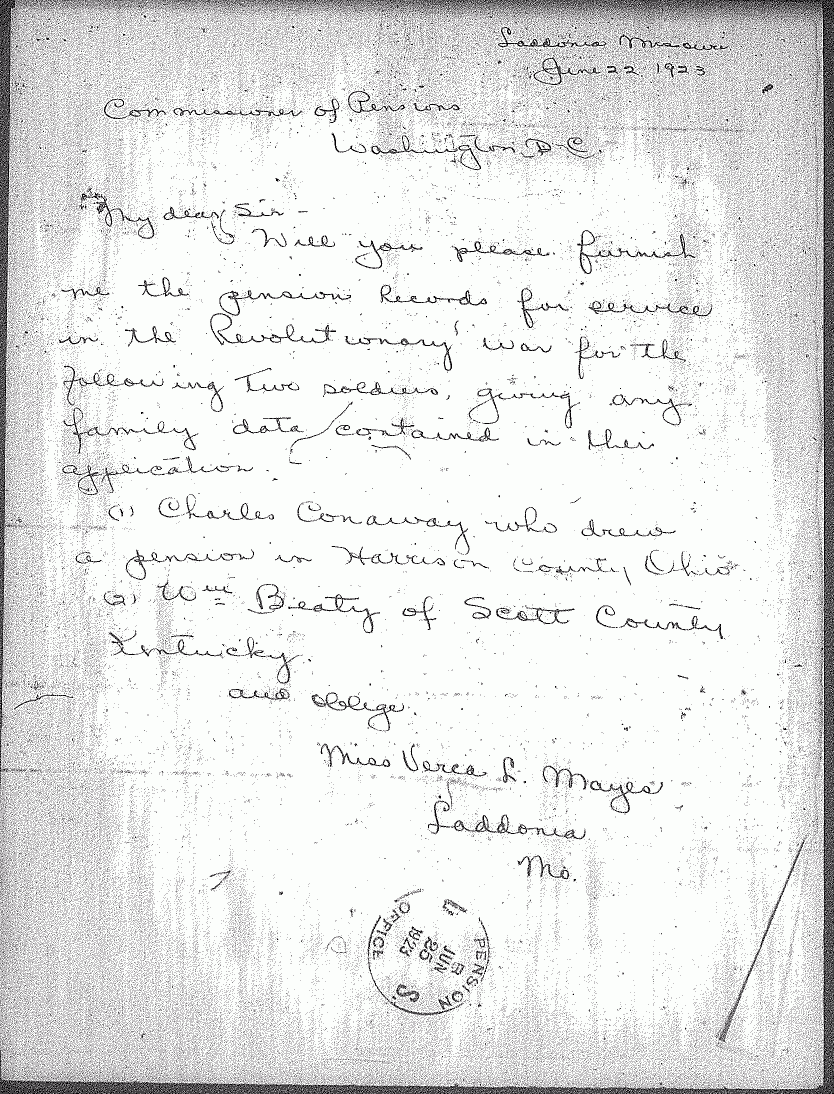 Laddonia Missouri
June 22 1923
Commissioner of Pensions
Washington, D-C.
My dear Sir -
Will you please furnish
me the pension Records for service
in the Revolutionary war for the
following two soldiers, giving any
family data contained in their
application.
(1) Charles Conaway who drew
a pension in Harrison County Ohio
(2) Wm Beaty of Scott County
Kentucky.
and oblige.
Miss Verca L. Mayes
Laddonia
Mo.
U. S. PENSION OFFICE
JUN
25
1923